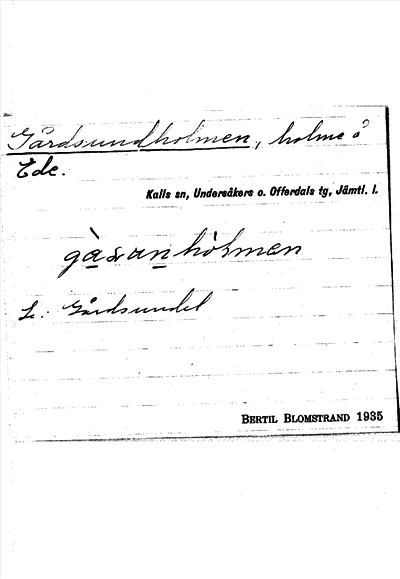 Gårdsundholmen, holme å
Ede.
Kalls sn, Undersåkers o. Offerdals tg, Jämtl. l.
L: Gårdsundet
BERTIL BLOMSTRAND 1935